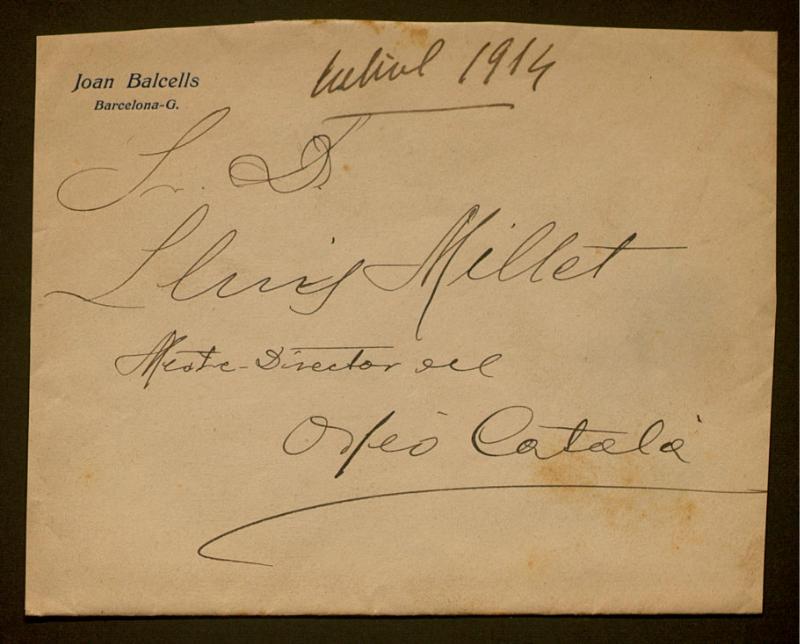 Joan Balcells
Barcelona-G.
1914
Sr. D.
Lluis Millet
Mestre-Director del
Orfeó Català